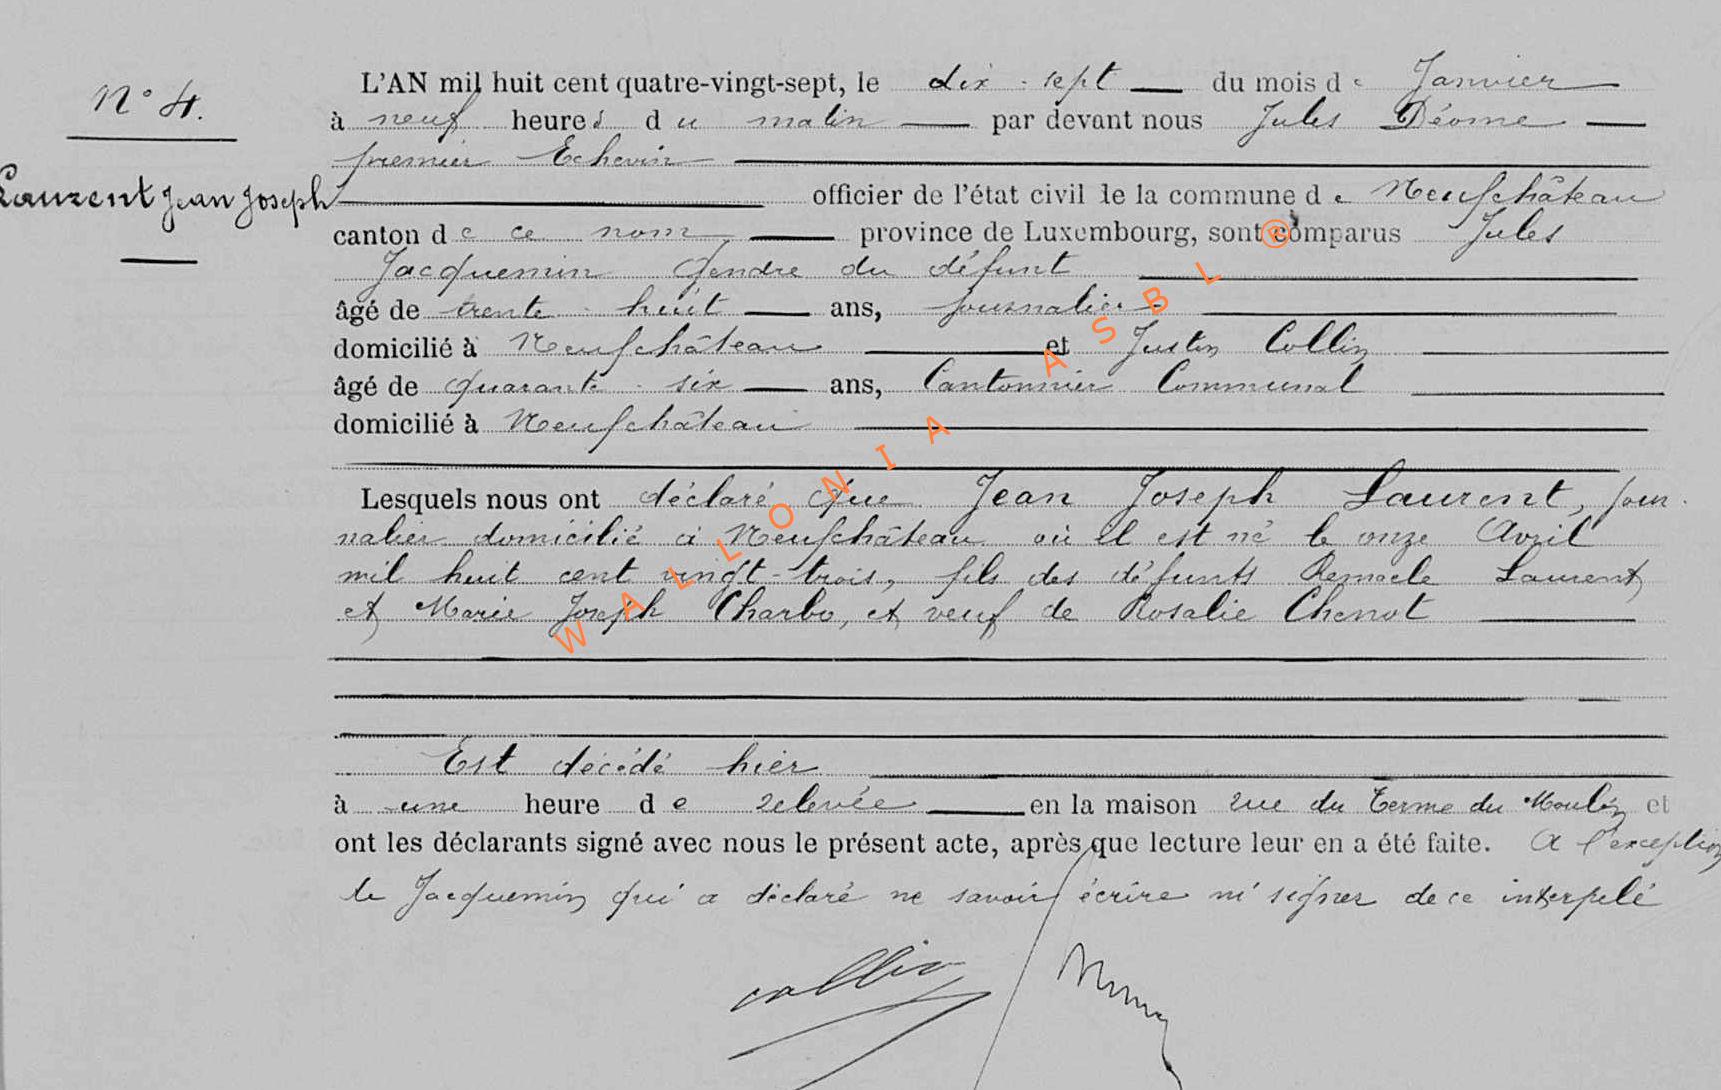 N° 4.
Laurent Jean Joseph
L'AN mil huit cent quatre-vingt-sept, le dix-sept du mois de Janvier
à neuf heures du matin par devant nous Jules Déome
premier Echevin
officier de l'état civil de la commune de Neufchâteau
canton de ce nom province de Luxembourg, sont comparus Jules
Jacquemin Gendre du défunt
âgé de trente-huit ans, journalier
domicilié à Neufchâteau et Justin Collin
âgé de quarante-six ans, Cantonnier Communal
domicilié à Neufchâteau
Lesquels nous ont déclaré que Jean Joseph Laurent, jour-
nalier domicilié à Neufchâteau où il est né le onze Avril
mil huit cent vingt-trois, fils des défunts Remacle Laurent
et Marie Joseph Charbo, et veuf de Rosalie Chenot
Est décédé hier
à une heure de relevée en la maison rue du Terme du Moulin et
ont les déclarants signé avec nous le présent acte, après que lecture leur en a été faite. A l'exception
de Jacquemin qui a déclaré ne savoir écrire ni signer de ce interpelé
collin
WALLONIA ASBL ®